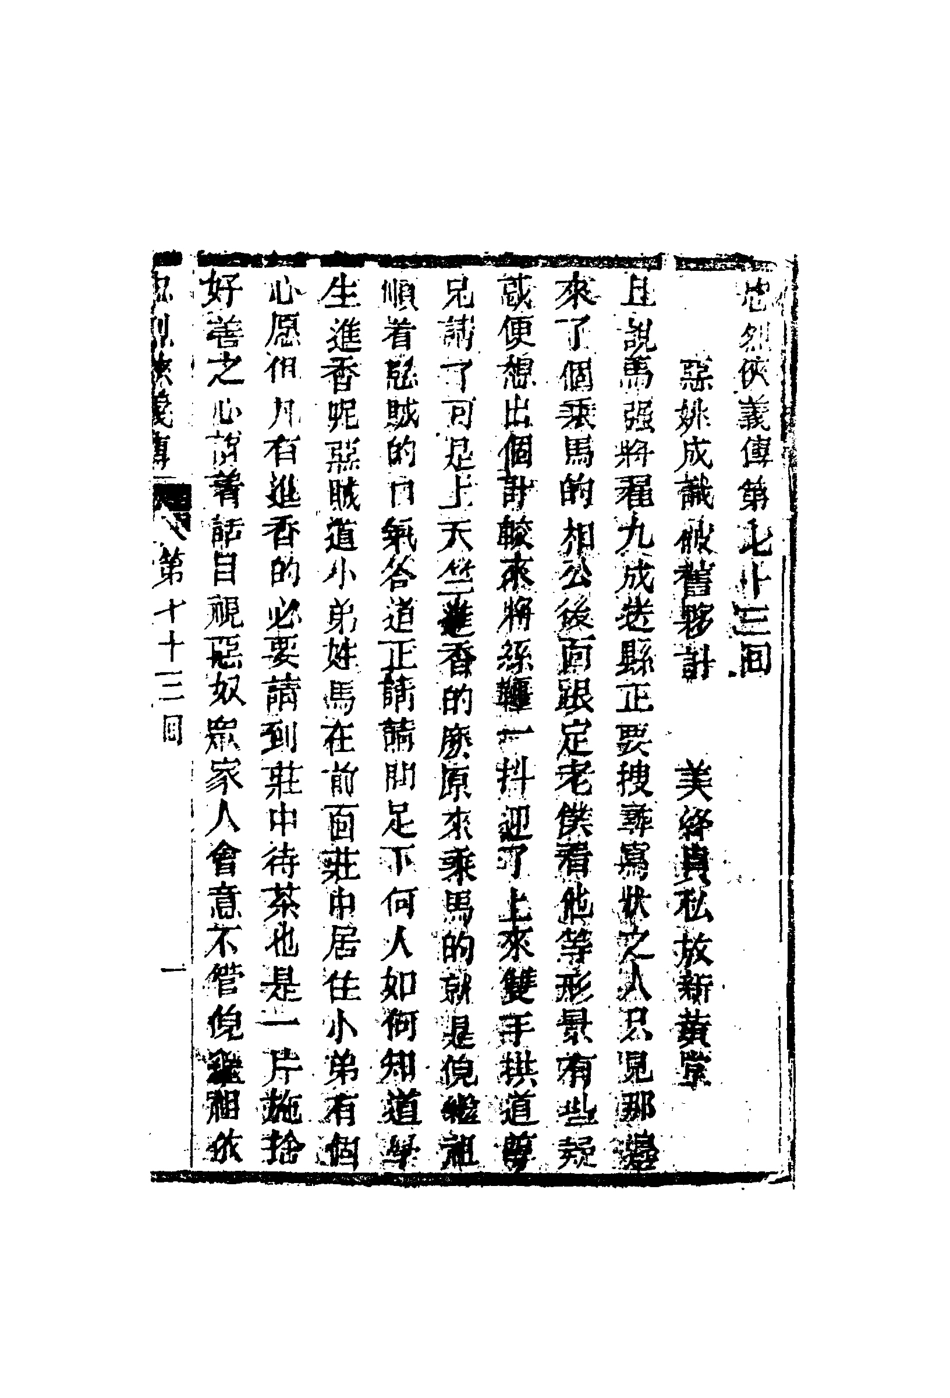 忠烈俠義傳第七十三回
惡姚成識破舊夥計　美絳貞私放新黃堂
且說馬强將翟九成送縣正要搜尋寫狀之人只見那邊
來了個乘馬的相公後面跟定老僕看他等形景有些疑
惑便想出個計較來將絲韁一抖迎了上來雙手拱道尊
兄請了可是上天竺進香的麽原來乘馬的就是倪繼祖
順着惡賊的口氣荅道正請請問足下何人如何知道學
生進香呢惡賊道小弟姓馬在前面莊中居住小弟有個
心愿但凡有進香的必要請到莊中待茶也是一片施捨
好善之心說着話目視惡奴眾家人會意不管倪繼祖依
忠烈俠義傳　第十十三回　一